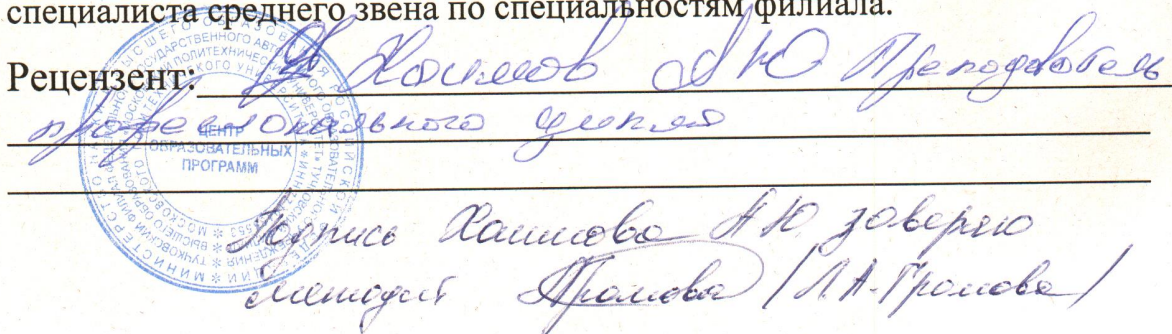 специалиста среднего звена по специальностям филиала.
Рецензент: Хаимов А Ю Преподаватель
профессионального цикла
ЦЕНТР
ОБРАЗОВАТЕЛЬНЫХ
ПРОГРАММ
Подпись Хаимова А Ю. заверяю
методист Громова / Л.А. Громова /